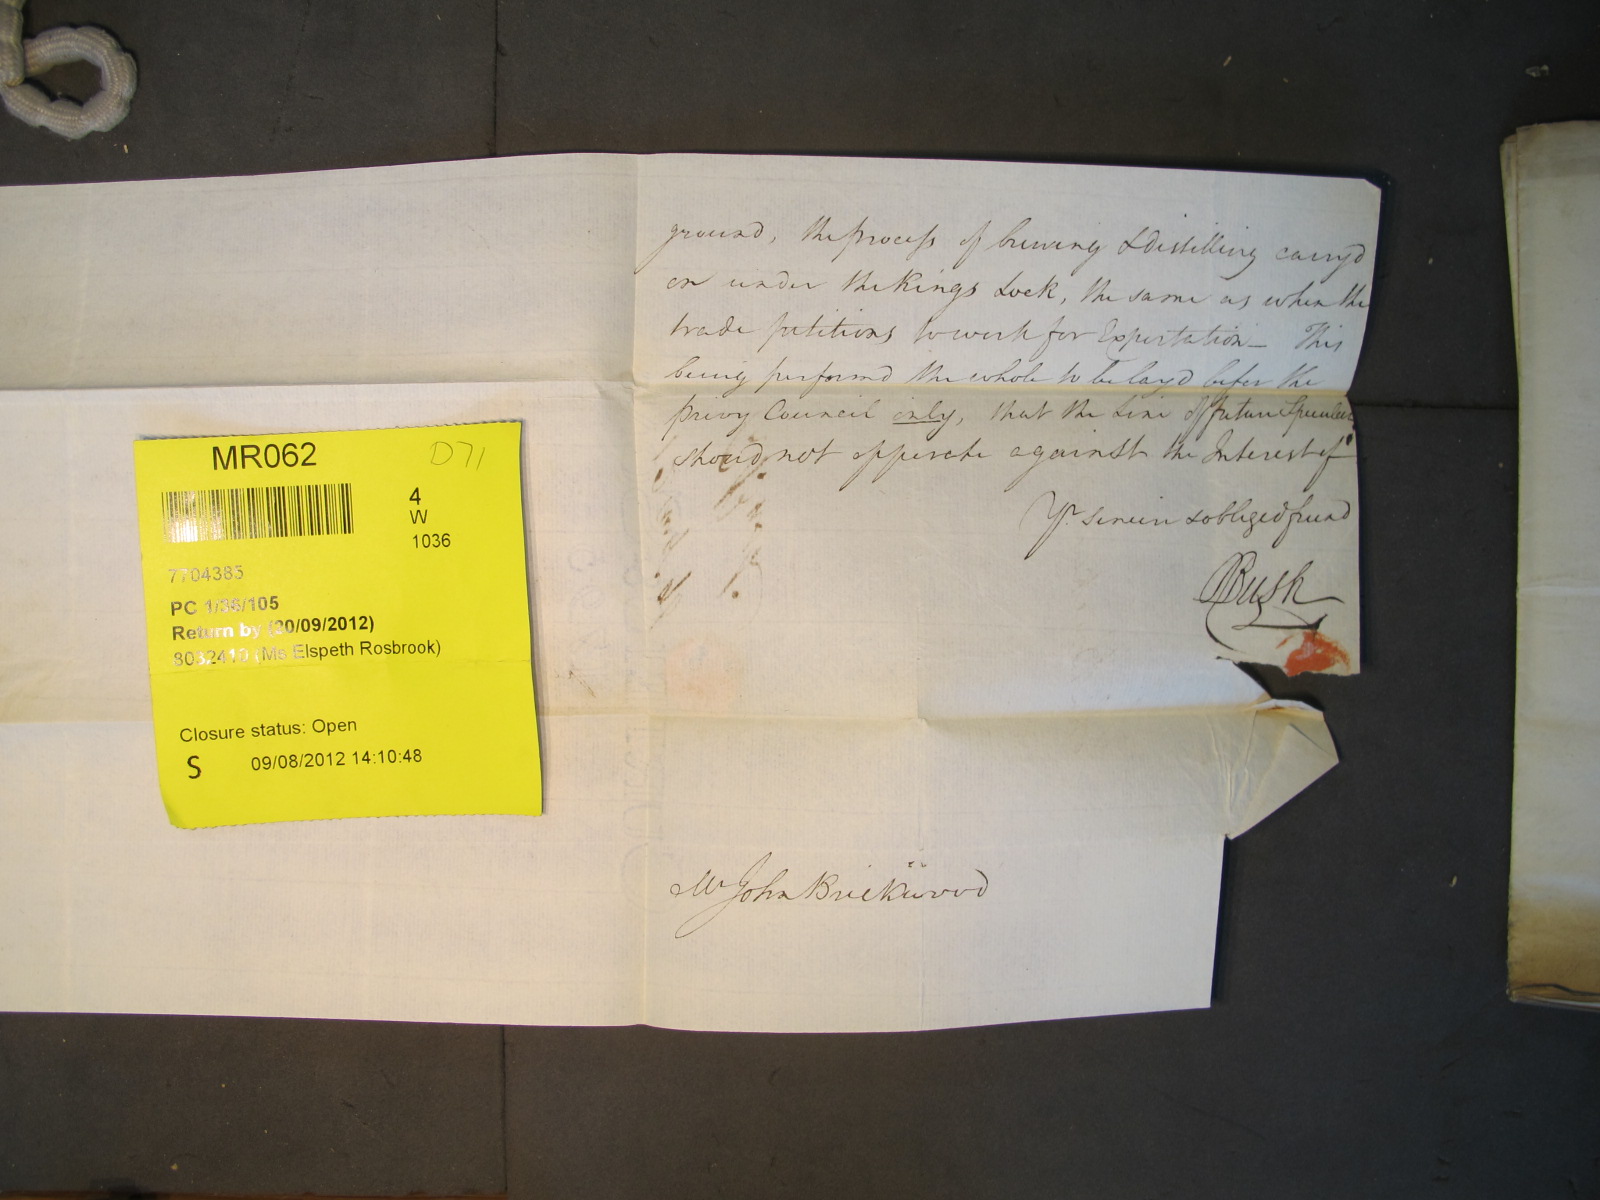 ground, the process of brewing & distilling carry'd
on under the Kings Lock, the same as when the
trade petitions to work for Exportation – This
being performd the whole to be lay'd befor the
privy Council only, that the Line of future
should not opperate against the Interest of
Yr. & obliged friend
Bush
Mr John Brickwood
MR062
D71
4
W
1036
7704385
PC 1/36/105
Return by (30/09/2012)
8032410 (Ms Elspeth Rosbrook)
Closure status: Open
S 09/08/2012 14:10:48